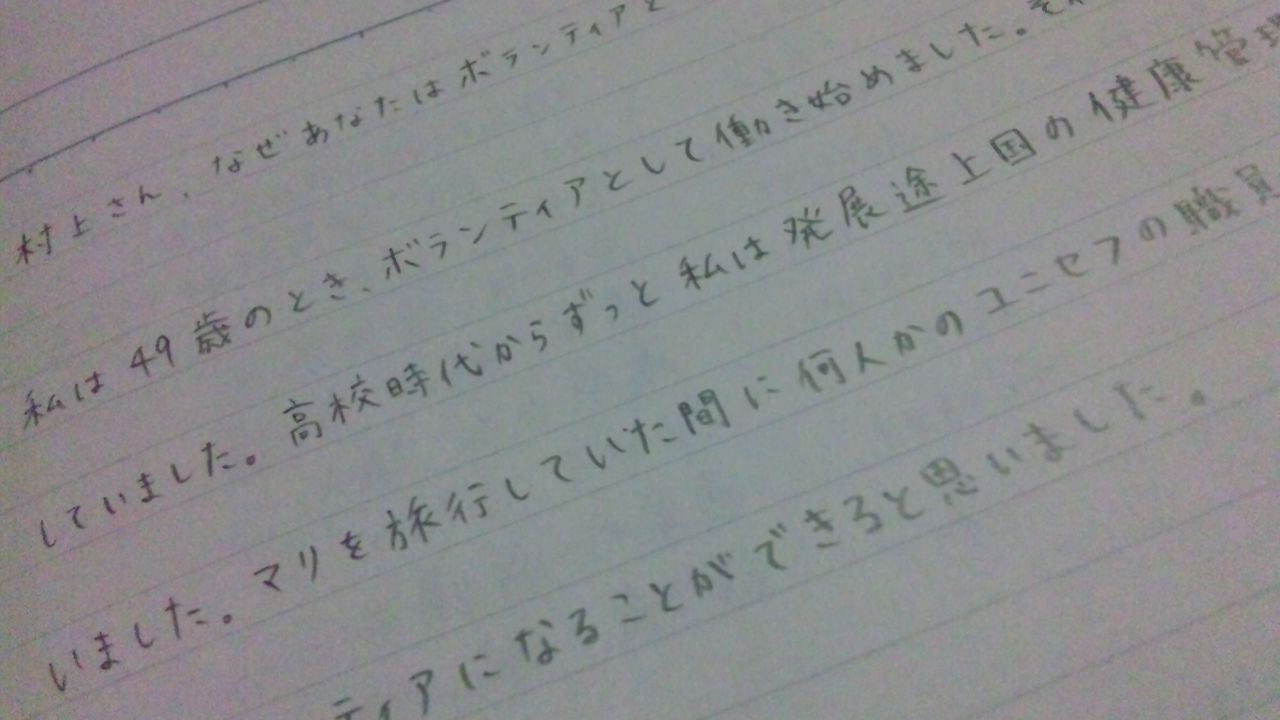 村上さん、なぜあなたはボランティアと
私は49歳のとき、ボランティアとして働き始めました。それ
していました。高校時代からずっと私は発展途上国の健康管理
いました。マリを旅行していた間に何人かのユニセフの職員
ティアになることができると思いました。